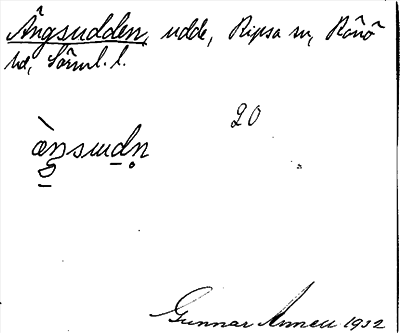 Ängsudden, udde, Ripsa sn, Rönö
hd, Sörml. l.
20
Gunnar Linnell 1932